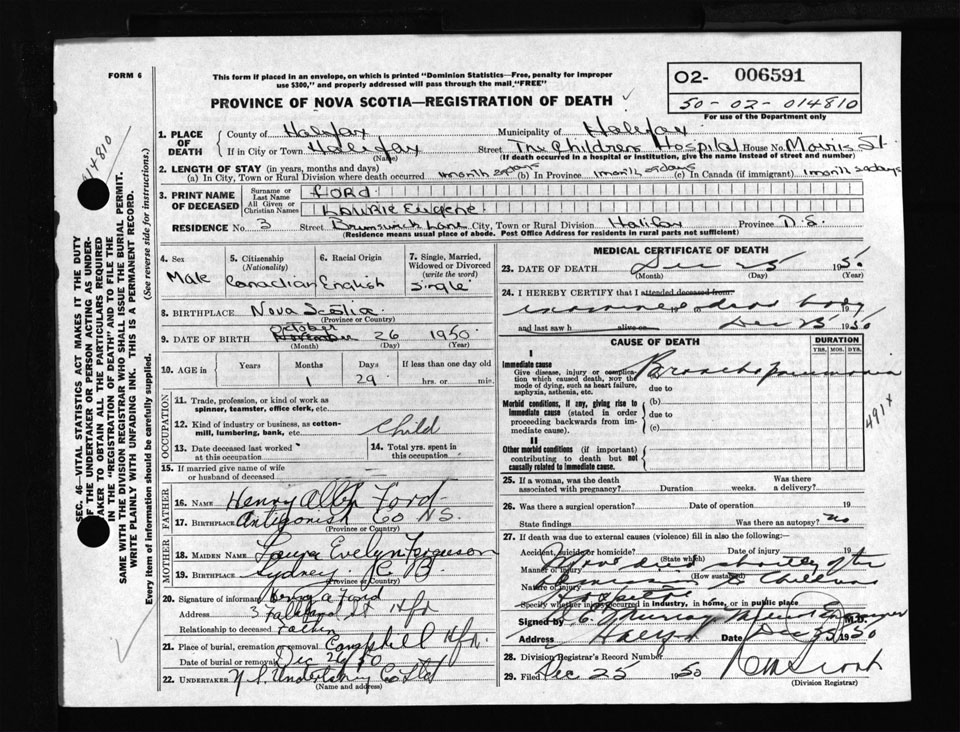 FORM 6
This form if placed in an envelope, on which is printed "Dominion Statistics—Free, penalty for improper
use $300," and properly addressed will pass through the mail, "FREE"
PROVINCE OF NOVA SCOTIA—REGISTRATION OF DEATH
02- 006591
50-02-014810
For use of the Department only
14810
SEC. 46—VITAL STATISTICS ACT MAKES IT THE DUTY
OF THE UNDERTAKER OR PERSON ACTING AS UNDER-
TAKER TO OBTAIN ALL THE PARTICULARS REQUIRED
IN THE "REGISTRATION OF DEATH" AND TO FILE THE
SAME WITH THE DIVISION REGISTRAR WHO SHALL ISSUE THE BURIAL PERMIT.
WRITE PLAINLY WITH UNFADING INK. THIS IS A PERMANENT RECORD.
Every item of information should be carefully supplied. (See reverse side for instructions.)
1. PLACE OF DEATH County of Halifax Municipality of Halifax
If in City or Town Halifax Street The Childrens Hospital House No. Morris St.
(Name) (If death occurred in a hospital or institution, give the name instead of street and number)
2. LENGTH OF STAY (in years, months and days)
(a) In City, Town or Rural Division where death occurred 1 month 29 days (b) In Province 1 month 29 days (c) In Canada (if immigrant) 1 month 29 days
3. PRINT NAME OF DECEASED Surname or Last Name FORD
All Given or Christian Names LAURIE Eugene
RESIDENCE No. 3 Street Brunswick Lane City, Town or Rural Division Halifax Province N.S.
(Residence means usual place of abode. Post Office Address for residents in rural parts not sufficient)
4. Sex Male
5. Citizenship (Nationality) Canadian
6. Racial Origin English
7. Single, Married, Widowed or Divorced (write the word) Single
8. BIRTHPLACE Nova Scotia
(Province or Country)
October
9. DATE OF BIRTH November 26 1950
(Month) (Day) (Year)
10. AGE in Years Months Days If less than one day old
1 29 hrs. or min.
OCCUPATION
11. Trade, profession, or kind of work as
spinner, teamster, office clerk, etc.
12. Kind of industry or business, as cotton-
mill, lumbering, bank, etc. Child
13. Date deceased last worked at this occupation
14. Total yrs. spent in this occupation
15. If married give name of wife
or husband of deceased
FATHER
16. NAME Henry Allen Ford
17. BIRTHPLACE Antigonish Co NS.
(Province or Country)
MOTHER
18. MAIDEN NAME Laura Evelyn Ferguson
19. BIRTHPLACE Sydney C.B.
(Province or Country)
20. Signature of informant Henry A Ford
Address 3 St Hfx
Relationship to deceased Father
21. Place of burial, cremation or removal Camphill Hfx.
Date of burial or removal Dec 26/50
22. UNDERTAKER N.S. Undertaking Co Ltd
(Name and address)
MEDICAL CERTIFICATE OF DEATH
23. DATE OF DEATH Dec 25 1950
(Month) (Day) (Year)
24. I HEREBY CERTIFY that I attended deceased from
examined dead body 19
and last saw h alive on Dec 25 1950
CAUSE OF DEATH
DURATION
YRS. MOS. DYS.
I
Immediate cause
Give disease, injury or complica-
tion which caused death, NOT the
mode of dying, such as heart failure,
asphyxia, asthenia, etc.
Bronchopneumonia
due to
Morbid conditions, if any, giving rise to
immediate cause (stated in order
proceeding backwards from im-
mediate cause).
(b)
due to
(c)
491x
II
Other morbid conditions (if important)
contributing to death but not
causally related to immediate cause.
25. If a woman, was the death
associated with pregnancy? Duration weeks. Was there
a delivery?
26. Was there a surgical operation? Date of operation 19
State findings Was there an autopsy? no
27. If death was due to external causes (violence) fill in also the following:
Accident, suicide or homicide? Date of injury 19
(State which)
Manner of injury died shortly after
(How sustained)
Nature of injury admission to Childrens
Hospital
Specify whether injury occurred in industry, in home, or in public place
Signed by Murray M.D.
Address Halifax Date Dec 25 1950
28. Division Registrar's Record Number
29. Filed Dec 25 1950
(Division Registrar)